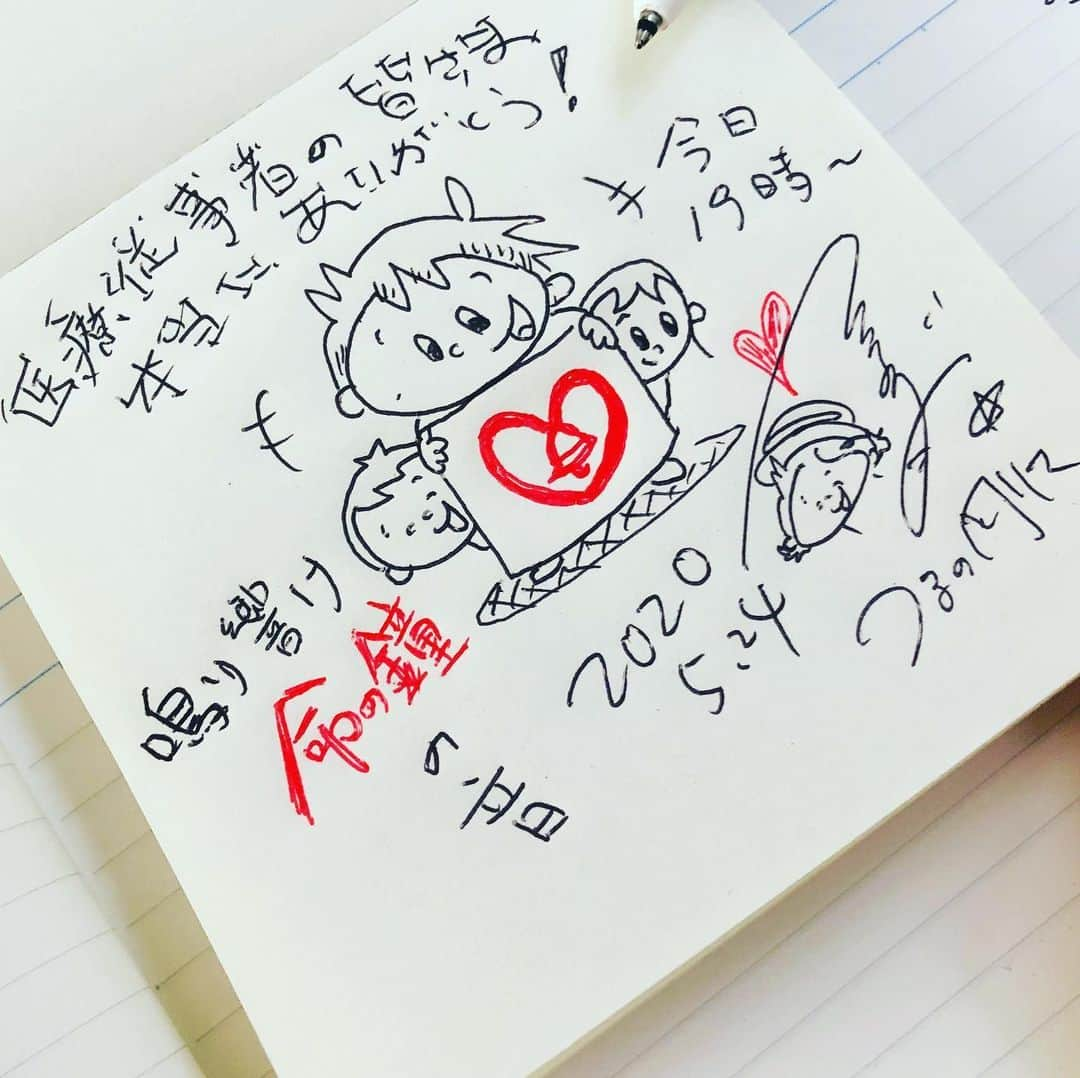 医療従事者の皆さま
本当に ありがとう!
今日
19時~
鳴り響け
命の鐘
の音
2020
5.24
つるの剛士